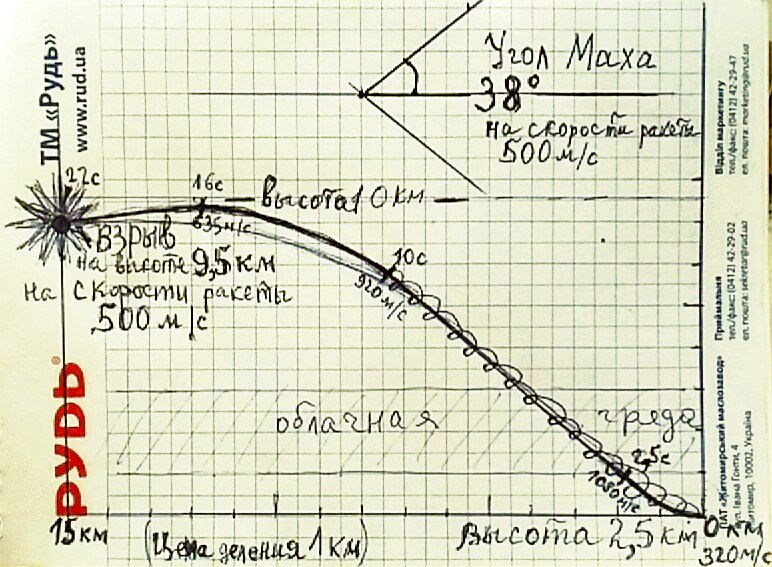 Угол Маха
38°
на скорости ракеты
500 м/с
22с
16с
высота 10 км
635м/с
взрыв
на высоте 9,5 км
на скорости ракеты
500 м/с
10с
920м/с
облачная гряда
2,5с
1080м/с
15 км
(Цена деления 1 км)
Высота 2,5 км
0 км
320 м/с
ТМ «Рудь»
www.rud.ua
РУДЬ®
Відділ маркетингу
тел./факс: (0412) 42-29-47
ел. пошта: marketing@rud.ua
Приймальня
тел./факс: (0412) 42-29-02
ел. пошта: sekretar@rud.ua
ПАТ «Житомирський маслозавод»
вул. Івана Гонти, 4
Житомир, 10002, Україна